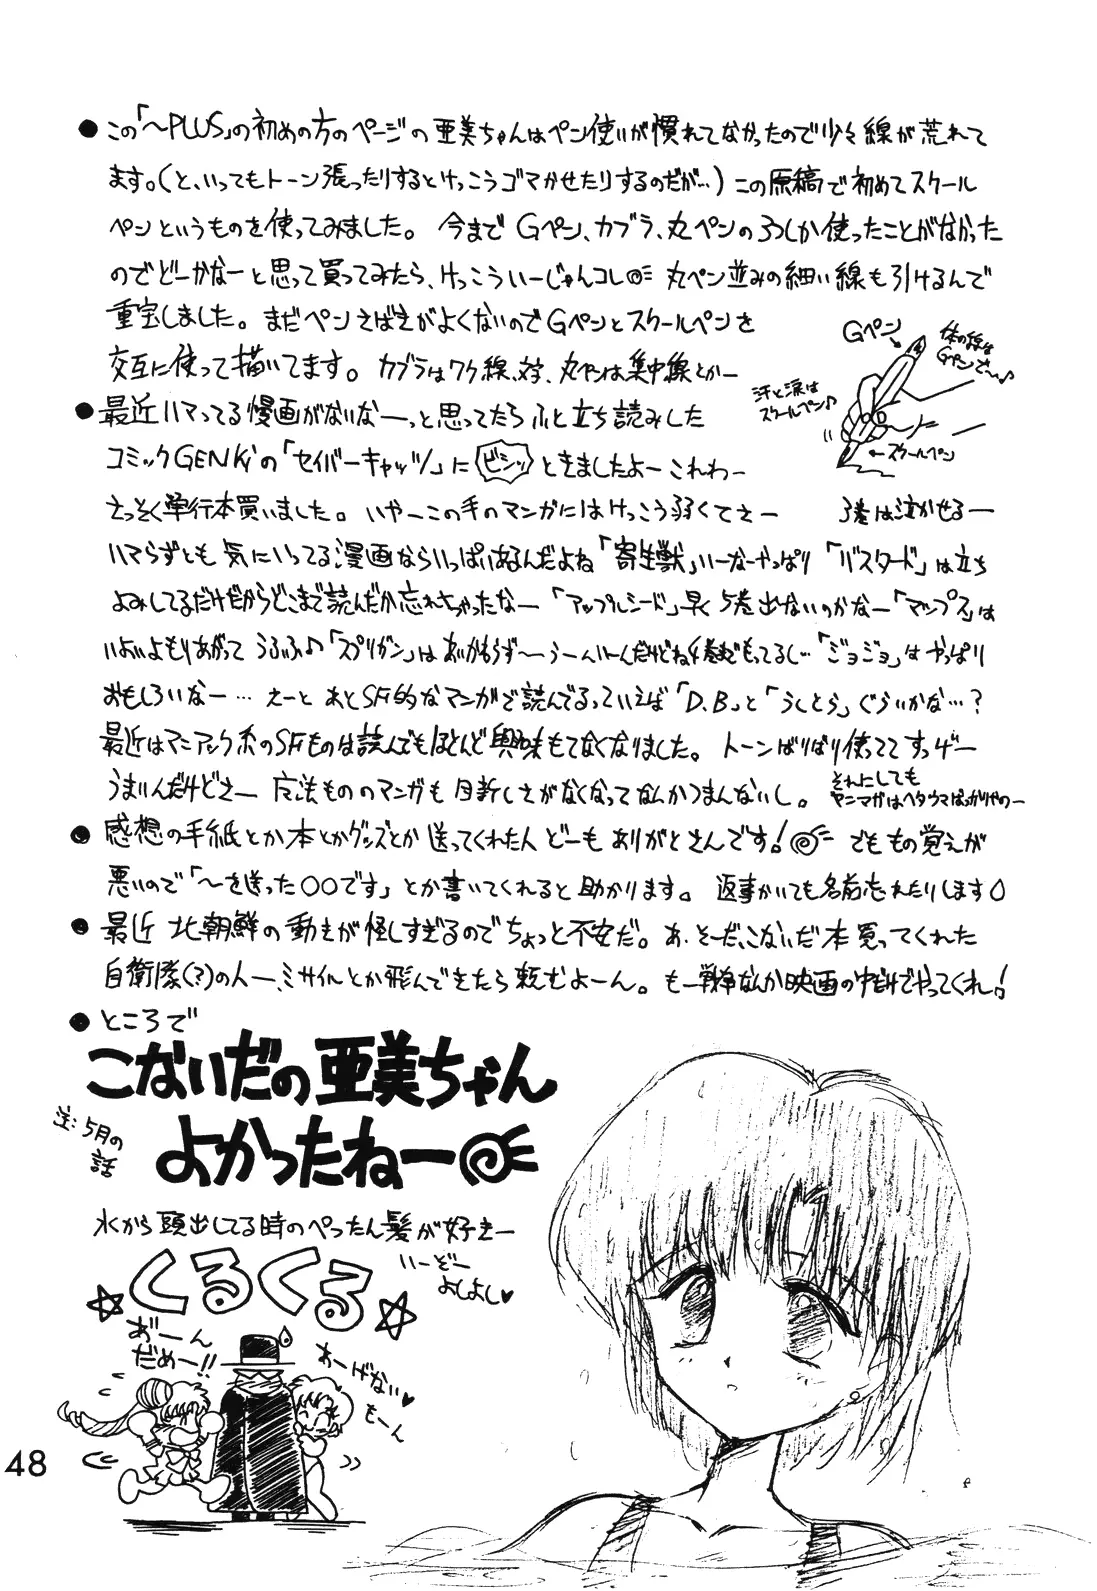 ●この「～PLUS」の初めの方のページの亜美ちゃんはペン使いが慣れてなかったので少々線が荒れて
ます。(と、いってもトーン張ったりするとけっこうゴマかせたりするのだが…)この原稿で初めてスクール
ペンというものを使ってみました。今までGペン、カブラ、丸ペンの3つしか使ったことがなかった
のでどーかなーと思って買ってみたら、けっこういーじゃんコレ 丸ペン並みの細い線も引けるんで
重宝しました。まだペンさばきがよくないのでGペンとスクールペンを
交互に使って描いてます。カブラはワク線、丸ペンは集中線とかー
Gペン
体の線は
Gペンで〜♪
汗と涙は
スクールペン♪
←スクールペン
●最近ハマってる漫画がないなーっと思ってたらふと立ち読みした
コミックGENKiの「セイバーキャッツ」にビシッときましたよーこれわー
さっそく単行本買いました。いやーこの手のマンガにはけっこう弱くてさー 3巻は泣かせるー
ハマらずとも気にいってる漫画ならいっぱいあるんだよね「寄生獣」いーなーやっぱり「バスタード」は立ち
よみしてるだけだからどこまで読んだか忘れちゃったなー「アップルシード」早く5巻出ないのかなー「マップス」は
いよいよもりあがってうふふ♪「スプリガン」はあいかわらず〜うーんいーんだけどね4巻までもってるし…「ジョジョ」はやっぱり
おもしろいなー…えーとあとSF的なマンガで読んでるっていえば「D.B」と「うしとら」ぐらいかな…?
最近はマニアック系のSFものは読んでもほとんど興味もてなくなりました。トーンばりばり使っててすっげー
うまいんだけどさー 魔法もののマンガも目新しさがなくなってなんかつまんないし。
それにしても
ヤニマガはヘタウマばっかりやのー
●感想の手紙とか本とかグッズとか送ってくれた人どーもありがとさんです! でももの覚えが
悪いので「〜を送った○○です」とか書いてくれると助かります。返事かいても名前忘れたりします
●最近北朝鮮の動きが怪しすぎるのでちょっと不安だ。あ、そーだ、こないだ本買ってくれた
自衛隊(?)の人ー、ミサイルとか飛んできたら頼むよーん。もー戦争なんか映画の中だけでやってくれ!
●ところで
こないだの亜美ちゃん
よかったねー
注:5月の
話
水から頭出してる時のぺったん髪が好きー
いーぞー
よしよし♥
くるくる
あ゛ーん
だめー!!
あーげない♥
もーん
48